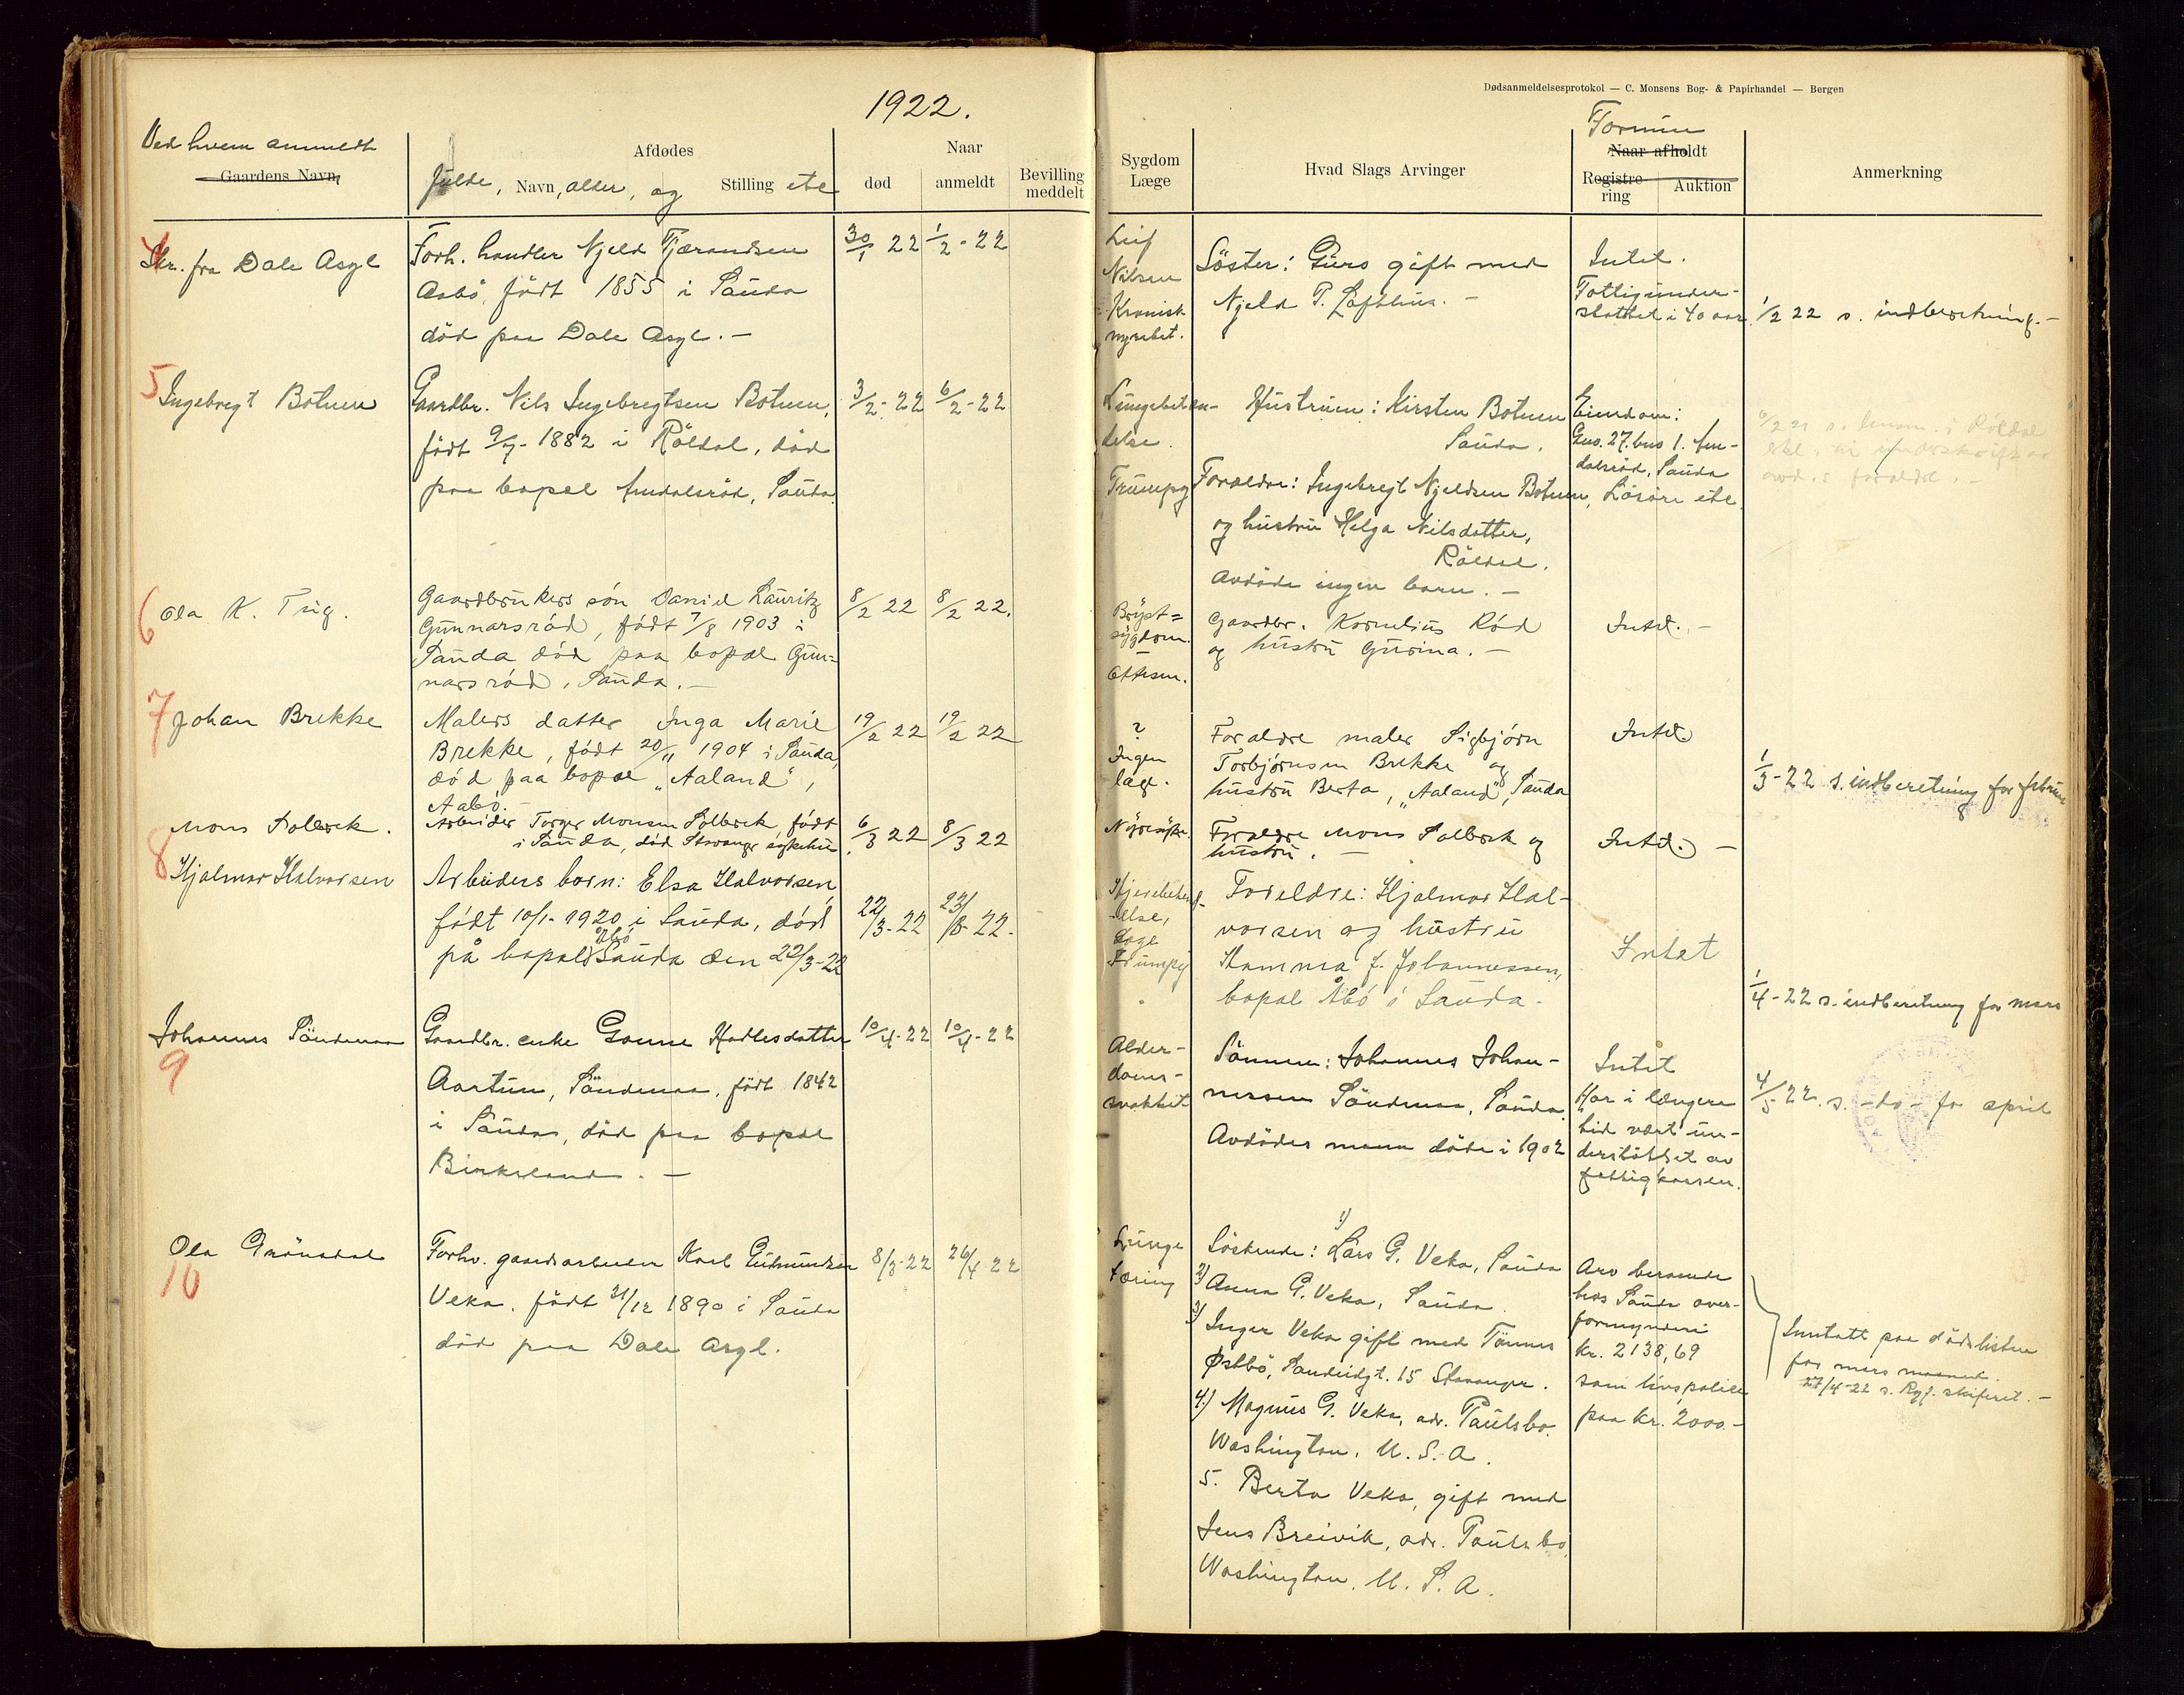 1922.
Dødsanmeldelsesprotokol — C. Monsens Bog- & Papirhandel — Bergen
Ved hvem anmeldt
Gaardens Navn
Afdødes
fulde, Navn, alder, og Stilling etc
Naar
død
anmeldt
Bevilling
meddelt
Sygdom
Læge
Hvad Slags Arvinger
Formue
Naar afholdt
Registre-
ring
Auktion
Anmerkning
4
Skr. fra Dale Asyl
Forh. handler Njeld Tjærandsen
Aabö, födt 1855 i Sauda
död paa Dale Asyl. —
30/1 22
1/2 - 22
Leif
Nilsen
Kronisk
nyrebet.
Söster: Guro gift med
Njeld P. Lofthus. —
Intet.
Fattigunder-
stöttet i 40 aar.
1/2 22 s. indberetning. —
5
Ingebregt Botnen
Gaardbr. Nils Ingebregtsen Botnen,
födt 9/7- 1882 i Röldal, död
paa bopæl Amdalsröd, Sauda.
3/2 - 22
6/2 - 22
Lungebeten-
delse.
Trumpy
Hustruen: Kirsten Botnen
Sauda.
Forældre: Ingebregt Njeldsen Botnen,
og hustru Helga Nilsdatter,
Röldal.
Avdöde ingen barn. —
Eiendom:
Gno. 27. bno 1. Am-
dalsröd, Sauda
Lösöre etc.
6
Ola K. Trig.
Gaardbrukers sön Daniel Lauritz
Gunnarsröd, födt 7/8 1903 i
Sauda död paa bopæl Gun=
narsröd, Sauda. —
8/2 22
8/2 22.
Bryst=
sygdom.
—
Ottesen.
Gaardbr. Kornelius Röd
og hustru Gurina. —
Intet. —
7
Johan Brekke
Malers datter Inga Marie
Brekke, födt 20/11 1904 i Sauda,
död paa bopæl „Aaland",
Aabö. —
19/2 22
19/2 22
?
Ingen
læge.
Forældre maler Sigbjörn
Torbjörnsen Brekke og
hustru Berta, „Aaland", Sauda
Intet.
1/3 - 22 s. indberetning for februar
Mons Solbrek.
Arbeider Torger Monsen Solbrek, födt
i Sauda, död Stavanger sykehus.
6/3 22
8/3 22
Forældre Mons Solbrek og
hustru. —
Intet. —
8
Hjalmar Halvorsen
Arbeiders barn: Elsa Halvorsen,
födt 10/1- 1920 i Sauda, död
på bopæl Åbö Sauda den 22/3-22
22/3-22
23/3-22.
Læge
Trumpy
Foreldre: Hjalmar Hal-
vorsen og hustru
f. Johannessen,
bopæl Åbö i Sauda.
Intet
1/4 - 22 s. indberetning for mars
Johannes Söndenaa
9
Gaardbr. enke Gonne Hadlesdatter
Aartun, Söndenaa, födt 1842
i Sauda, död paa bopæl
Birkeland. —
10/4 - 22
10/4 - 22
Alder-
doms-
svakhet
Sönnen: Johannes Johan-
nessen Söndenaa, Sauda.
Avdödes mann döde i 1902
Intet
Har i længere
tid vært un-
derstöttet av
fattigkassen.
4/5 22. s. - do - for april
Ola Grönsdal
10
Forhv. gaardsarbeider Karl Gudmundsen
Veka. födt 31/12 1890 i Sauda
död paa Dale asyl.
8/3-22
26/4 22
Lunge
tæring
1)
Söskende: Lars G. Veka, Sauda
2) Anna G. Veka, Sauda.
3) Inger Veka gift med Tönnes
Østbö, Sandeidgt. 15 Stavanger.
4.) Magnus G. Veka, adr. Paulsbo.
Washington. U. S. A.
5. Berta Veka, gift med
Jens Breivik, adr. Paulsbo,
Washington, U. S. A.
Arv beroende
hos Sauda over-
formynderi
kr. 2138,69
sam livspolice
paa kr. 2000.-
Inntatt paa dödslisten
for mars maaned.
27/4-22 s. Ryf. skifteret. —